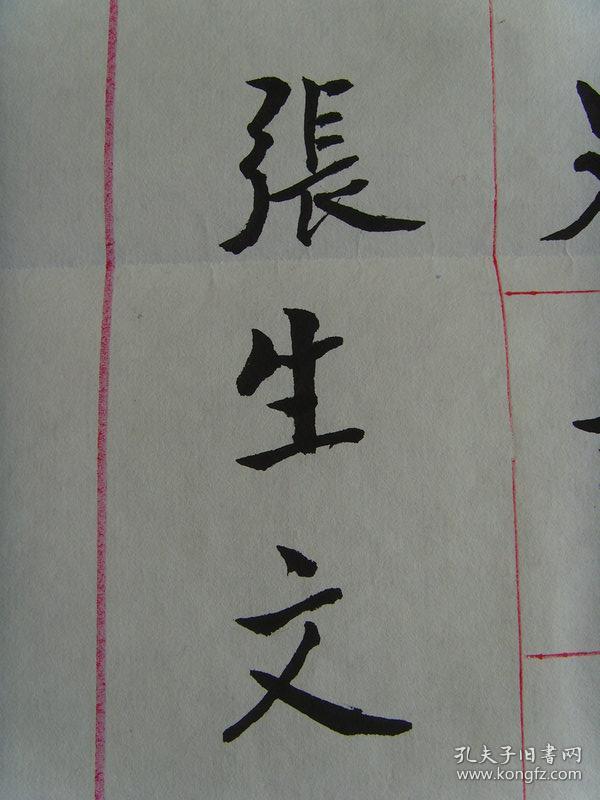 張生文
孔夫子旧書网
www.kongfz.com